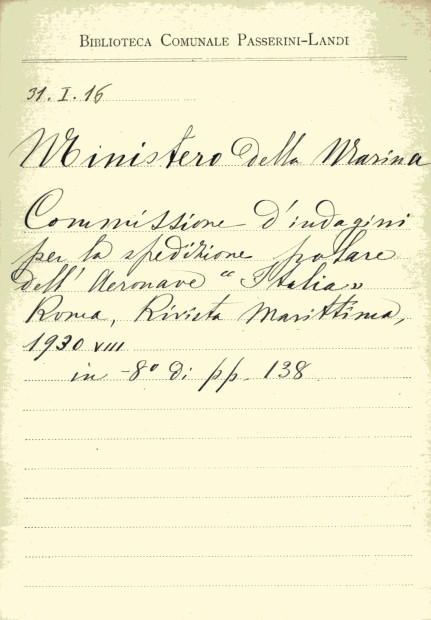 BIBLIOTECA COMUNALE PASSERINI-LANDI
31. I. 16
Ministero della Marina
Commissione d'indagini
per la spedizione polare
dell' Aeronave "Italia"
Roma, Rivista Marittima,
1930 VIII
in -8° di pp. 138